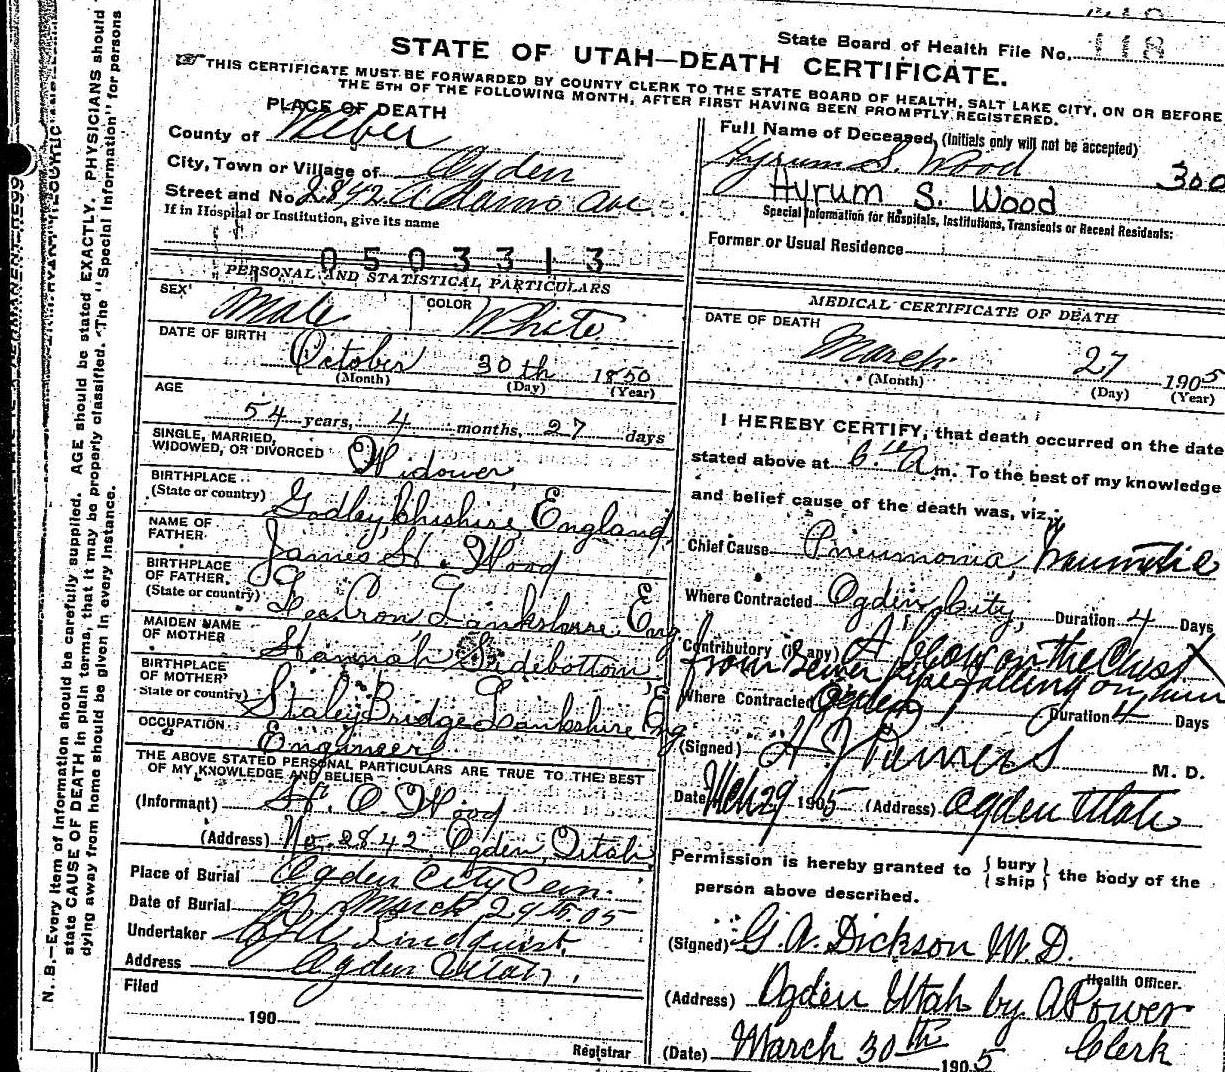 State Board of Health File No. 118
STATE OF UTAH—DEATH CERTIFICATE.
THIS CERTIFICATE MUST BE FORWARDED BY COUNTY CLERK TO THE STATE BOARD OF HEALTH, SALT LAKE CITY, ON OR BEFORE
THE 5TH OF THE FOLLOWING MONTH, AFTER FIRST HAVING BEEN PROMPTLY REGISTERED.
N. B.—Every item of information should be carefully supplied. AGE should be stated EXACTLY. PHYSICIANS should
state CAUSE OF DEATH in plain terms, that it may be properly classified. The "Special Information" for persons
dying away from home should be given in every instance.
PLACE OF DEATH
County of Weber
City, Town or Village of Ogden
Street and No. 2842 Adams Ave.
If in Hospital or Institution, give its name
0503313
PERSONAL AND STATISTICAL PARTICULARS
SEX Male COLOR White
DATE OF BIRTH
October 30th 1850
(Month) (Day) (Year)
AGE
54 years, 4 months, 27 days
SINGLE, MARRIED,
WIDOWED, OR DIVORCED Widower
BIRTHPLACE
(State or country) Godley, Chishire, England,
NAME OF
FATHER James H. Wood
BIRTHPLACE
OF FATHER
(State or country) Lankshire, Eng
MAIDEN NAME
OF MOTHER Hannah Sidebottom
BIRTHPLACE
OF MOTHER
State or country) Staley Bridge Lankshire Eng
OCCUPATION
Engineer
THE ABOVE STATED PERSONAL PARTICULARS ARE TRUE TO THE BEST
OF MY KNOWLEDGE AND BELIEF
(Informant) H. O. Wood
(Address) No. 2842, Ogden, Utah
Place of Burial Ogden City Cem.
Date of Burial March 29th 05
Undertaker Lindquist
Address Ogden Utah,
Filed
190
Registrar
Full Name of Deceased, (Initials only will not be accepted)
Hyrum S. Wood 300
Hyrum S. Wood
Special Information for Hospitals, Institutions, Transients or Recent Residents:
Former or Usual Residence
MEDICAL CERTIFICATE OF DEATH
DATE OF DEATH
March 27 1905
(Month) (Day) (Year)
I HEREBY CERTIFY, that death occurred on the date
stated above at 6 A m. To the best of my knowledge
and belief cause of the death was, viz.;
Chief Cause Pneumonia, Traumatic
Where Contracted Ogden City, Duration 4 Days
Contributory (if any) A blow on the Chest
from Sewer pipe falling on him
Where Contracted Ogden Duration 4 Days
(Signed) H J Powers M. D.
Date Mch 29 1905 (Address) Ogden Utah
Permission is hereby granted to { bury / ship } the body of the
person above described.
(Signed) G. A. Dickson M. D.
Health Officer.
(Address) Ogden Utah by A Power
Clerk
(Date) March 30th 1905